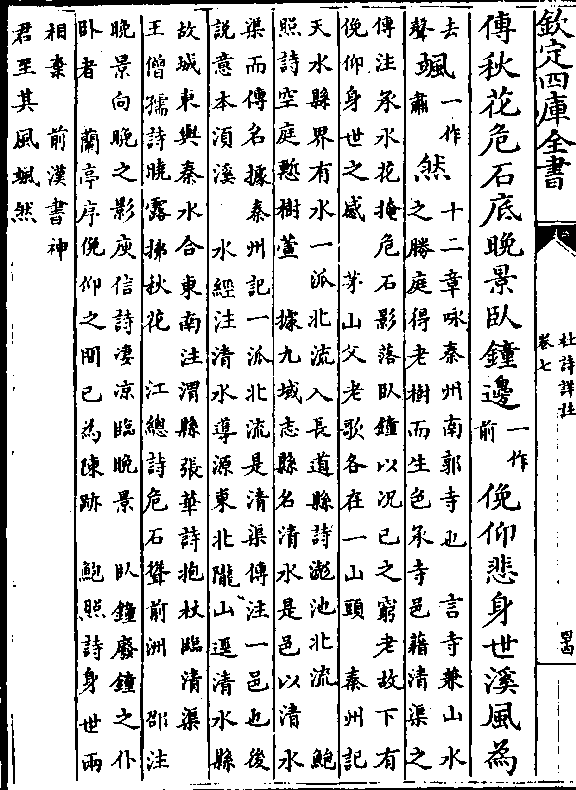 欽定四庫全書
杜詩詳註
卷七
傳秋花危石底晚景臥鐘邊一作前俛仰悲身世溪風為
去聲颯一作肅然
十二章咏秦州南郭寺也 言寺兼山水
之勝庭得老樹而生色承寺邑藉清渠之
傳注承水花掩危石影落臥鐘以况已之窮老故下有
俛仰身世之感 茅山父老歌各在一山頭 秦州記
天水縣界有水一派北流入長道縣詩滮池北流 鮑
照詩空庭慙樹萱 據九域志縣名清水是邑以清水
渠而傳名據秦州記一派北流是清渠傳注一邑也後
說意本湏溪 水經注清水導源東北隴山逕清水縣
故城東與秦水合東南注渭縣張華詩抱杖臨清渠
王僧孺詩曉露拂秋花 江總詩危石聳前洲 邵注
晚景向晚之影庾信詩凄凉臨晚景 臥鐘廢鐘之仆
臥者 蘭亭序俛仰之間已為陳跡 鮑照詩身世兩
相棄 前漢書神
君至其風颯然